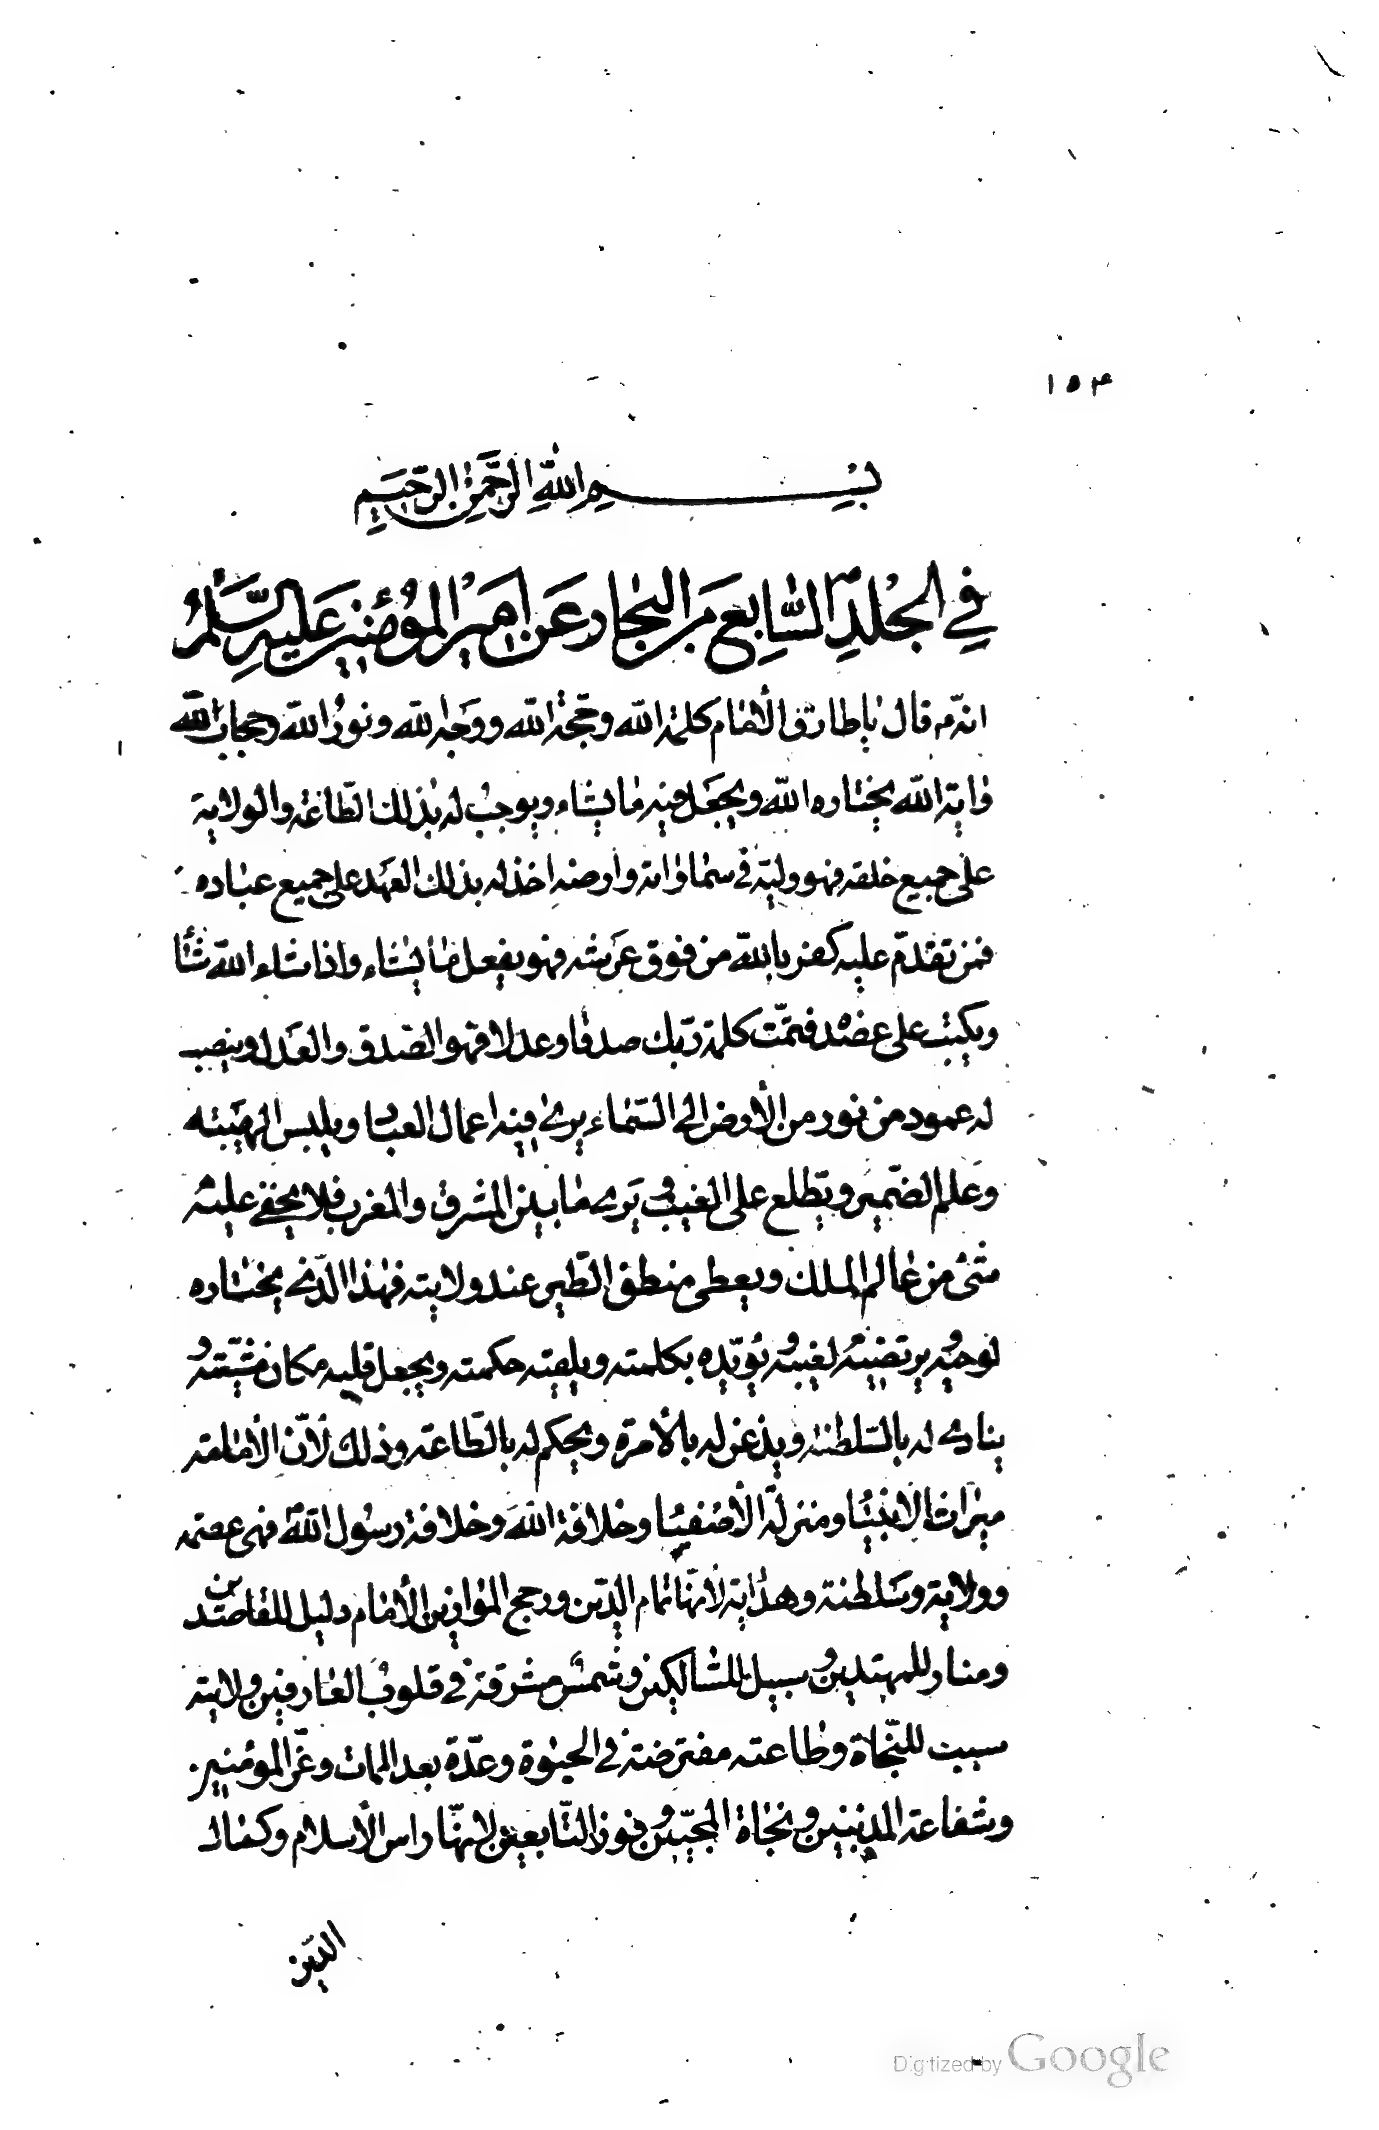 ١٥٣
بسم الله الرحمن الرحيم
في المجلد السابع من البحار عن امير المؤمنين عليه السلم
انه قال يا طارق الامام كلمة الله وحجة الله ووجه الله ونور الله وحجاب الله
واية الله يختاره الله ويجعل فيه ما يشاء ويوجب له بذلك الطاعة والولاية
على جميع خلقه فهو وليه في سماواته وارضه اخذ له بذلك العهد على جميع عباده
فمن تقدم عليه كفر بالله من فوق عرشه فهو يفعل ما يشاء واذا شاء الله شأا
ويكتب على عضده فتمت كلمة ربك صدقا وعدلا فهو الصدق والعدل وينصب
له عمود من نور من الأرض الى السماء يرى فيه اعمال العباد ويلبس الهيبة
وعلم الضمير ويطلع على الغيب ويرى ما بين المشرق والمغرب فلا يخفى عليه
شئ من عالم الملك ويعطى منطق الطير عند ولايته فهذا الذي يختاره
لوحيه ويرتضيه لغيبه ويؤيده بكلمته ويلقيه حكمته ويجعل قلبه مكان مشيته و
ينادى له بالسلطنة ويذعن له بالأمرة ويحكم له بالطاعة وذلك لأن الأمامة
ميراث الأنبيا ومنزلة الأصفيا وخلافة الله وخلافة رسول الله فهى عصمة
وولاية وسلطنة وهداية لأنها تمام الدين ورجح الموازين الأمام دليل للقاصدين
ومنار للمهتدين وسبيل للسالكين وشمس مشرقة في قلوب العارفين ولايته
سبب للنجاة وطاعته مفترضة في الحيوة وعدة بعد الممات وعز المؤمنين
وشفاعة المذنبين ونجاة المحبين وفوز التابعين لأنها راس الأسلام وكمال
الدين
Digitized by Google